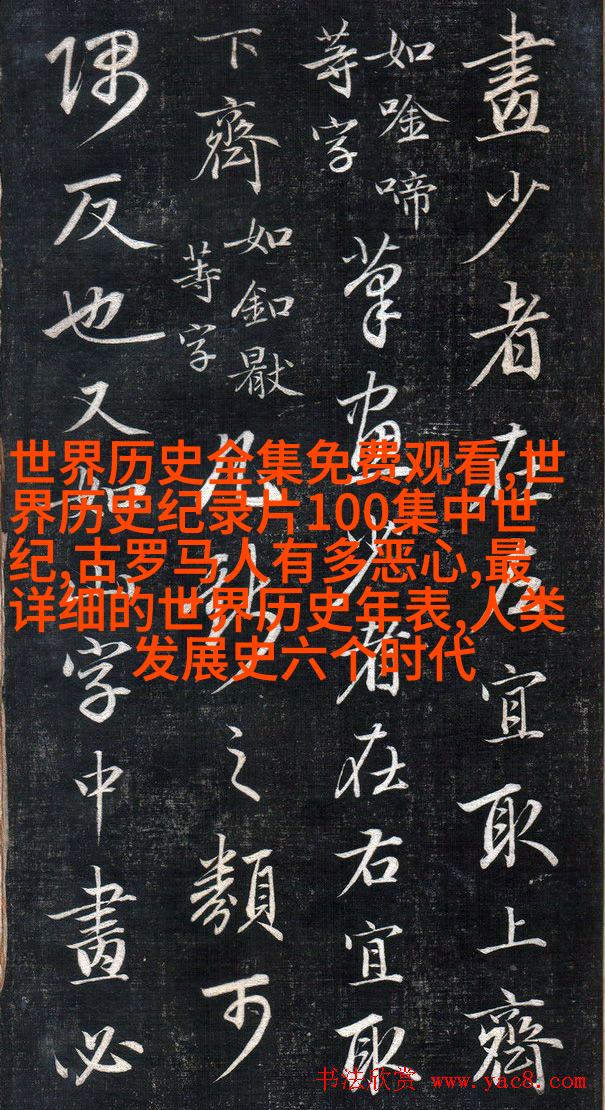 畫少者在左宜取上齊
如唫啼
等字
筆畫少者在右宜取
下齊
如釦
等字
凡之類可
隅反也又如山字中畫必
世界历史全集免费观看,世
界历史纪录片100集中世
纪,古罗马人有多恶心,最
详细的世界历史年表,人类
发展史六个时代
书法欣赏 www.yac8.com